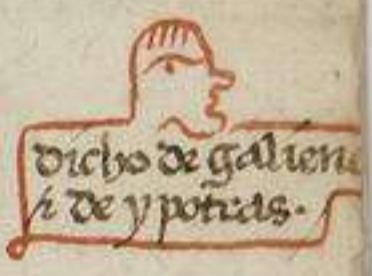 dicho de galiene
i de ypotras.